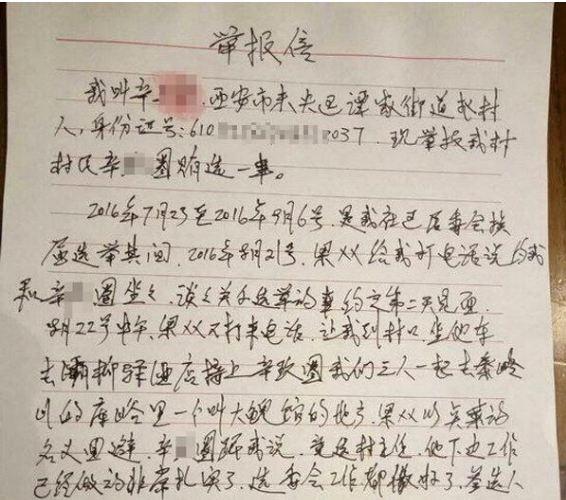 举报信
我叫辛 西安市未央区谭家街道 村
人,身份证号:610 037.现举报我村
村民辛 圈贿选一事。
2016年7月23至2016年9月6号.是我在区居委会换
届选举其间.2016年8月21号.梁XX给我打电话说约我
和辛 圈坐坐.谈谈关于选举的事约定第二天见面.
8月22号中午.梁XX又打来电话.让我到村口坐他车
去灞柳驿酒店接上辛 圈我们三人一起去秦岭
山的库峪里一个叫大鲵馆的地方.梁XX以点菜的
名义回避.辛 圈跟我说.竞选村主任.他下边工作
已经做的非常扎实了.选委会工作都做好了.参选人